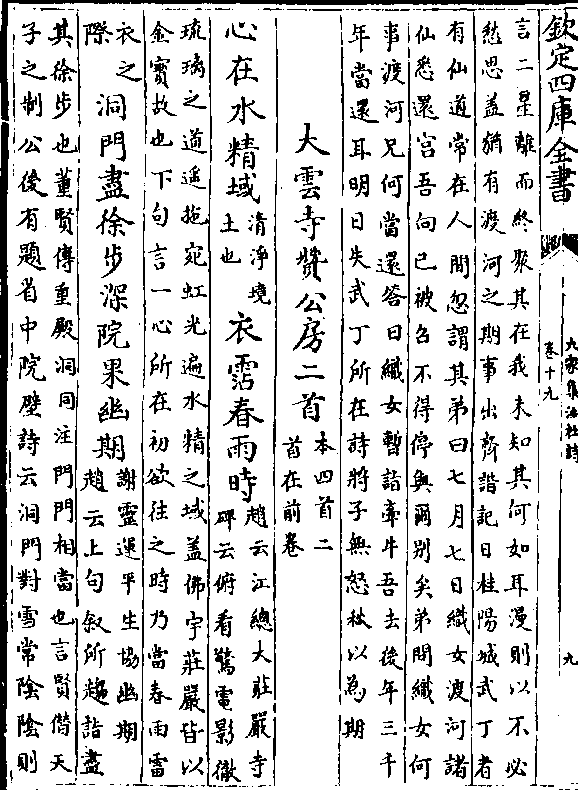 欽定四庫全書
九家集注杜詩
卷十九
九
言二星離而終聚其在我未知其何如耳漫則以不必
愁思蓋猶有渡河之期事出齊諧記曰桂陽城武丁者
有仙道常在人間忽謂其弟曰七月七日織女渡河諸
仙悉還宮吾向已被召不得停與爾别矣弟問織女何
事渡河兄何當還答曰織女暫詣牽牛吾去後年三千
年當還耳明日失武丁所在詩將子無怒秋以為期
大雲寺贊公房二首
本四首二
首在前卷
心在水精域
清淨境
土也
衣霑春雨時
趙云江總大莊嚴寺
碑云俯看驚電影徹
琉璃之道遥拖宛虹光遍水精之域蓋佛宇莊嚴皆以
金寶故也下句言一心所在初欲往之時乃當春雨霑
衣之
際
洞門盡徐步深院果幽期
謝靈運平生協幽期
趙云上句叙所趨詣盡
其徐步也董賢傳重殿洞門注門門相當也言賢僭天
子之制公後有題省中院壁詩云洞門對雪常陰陰則